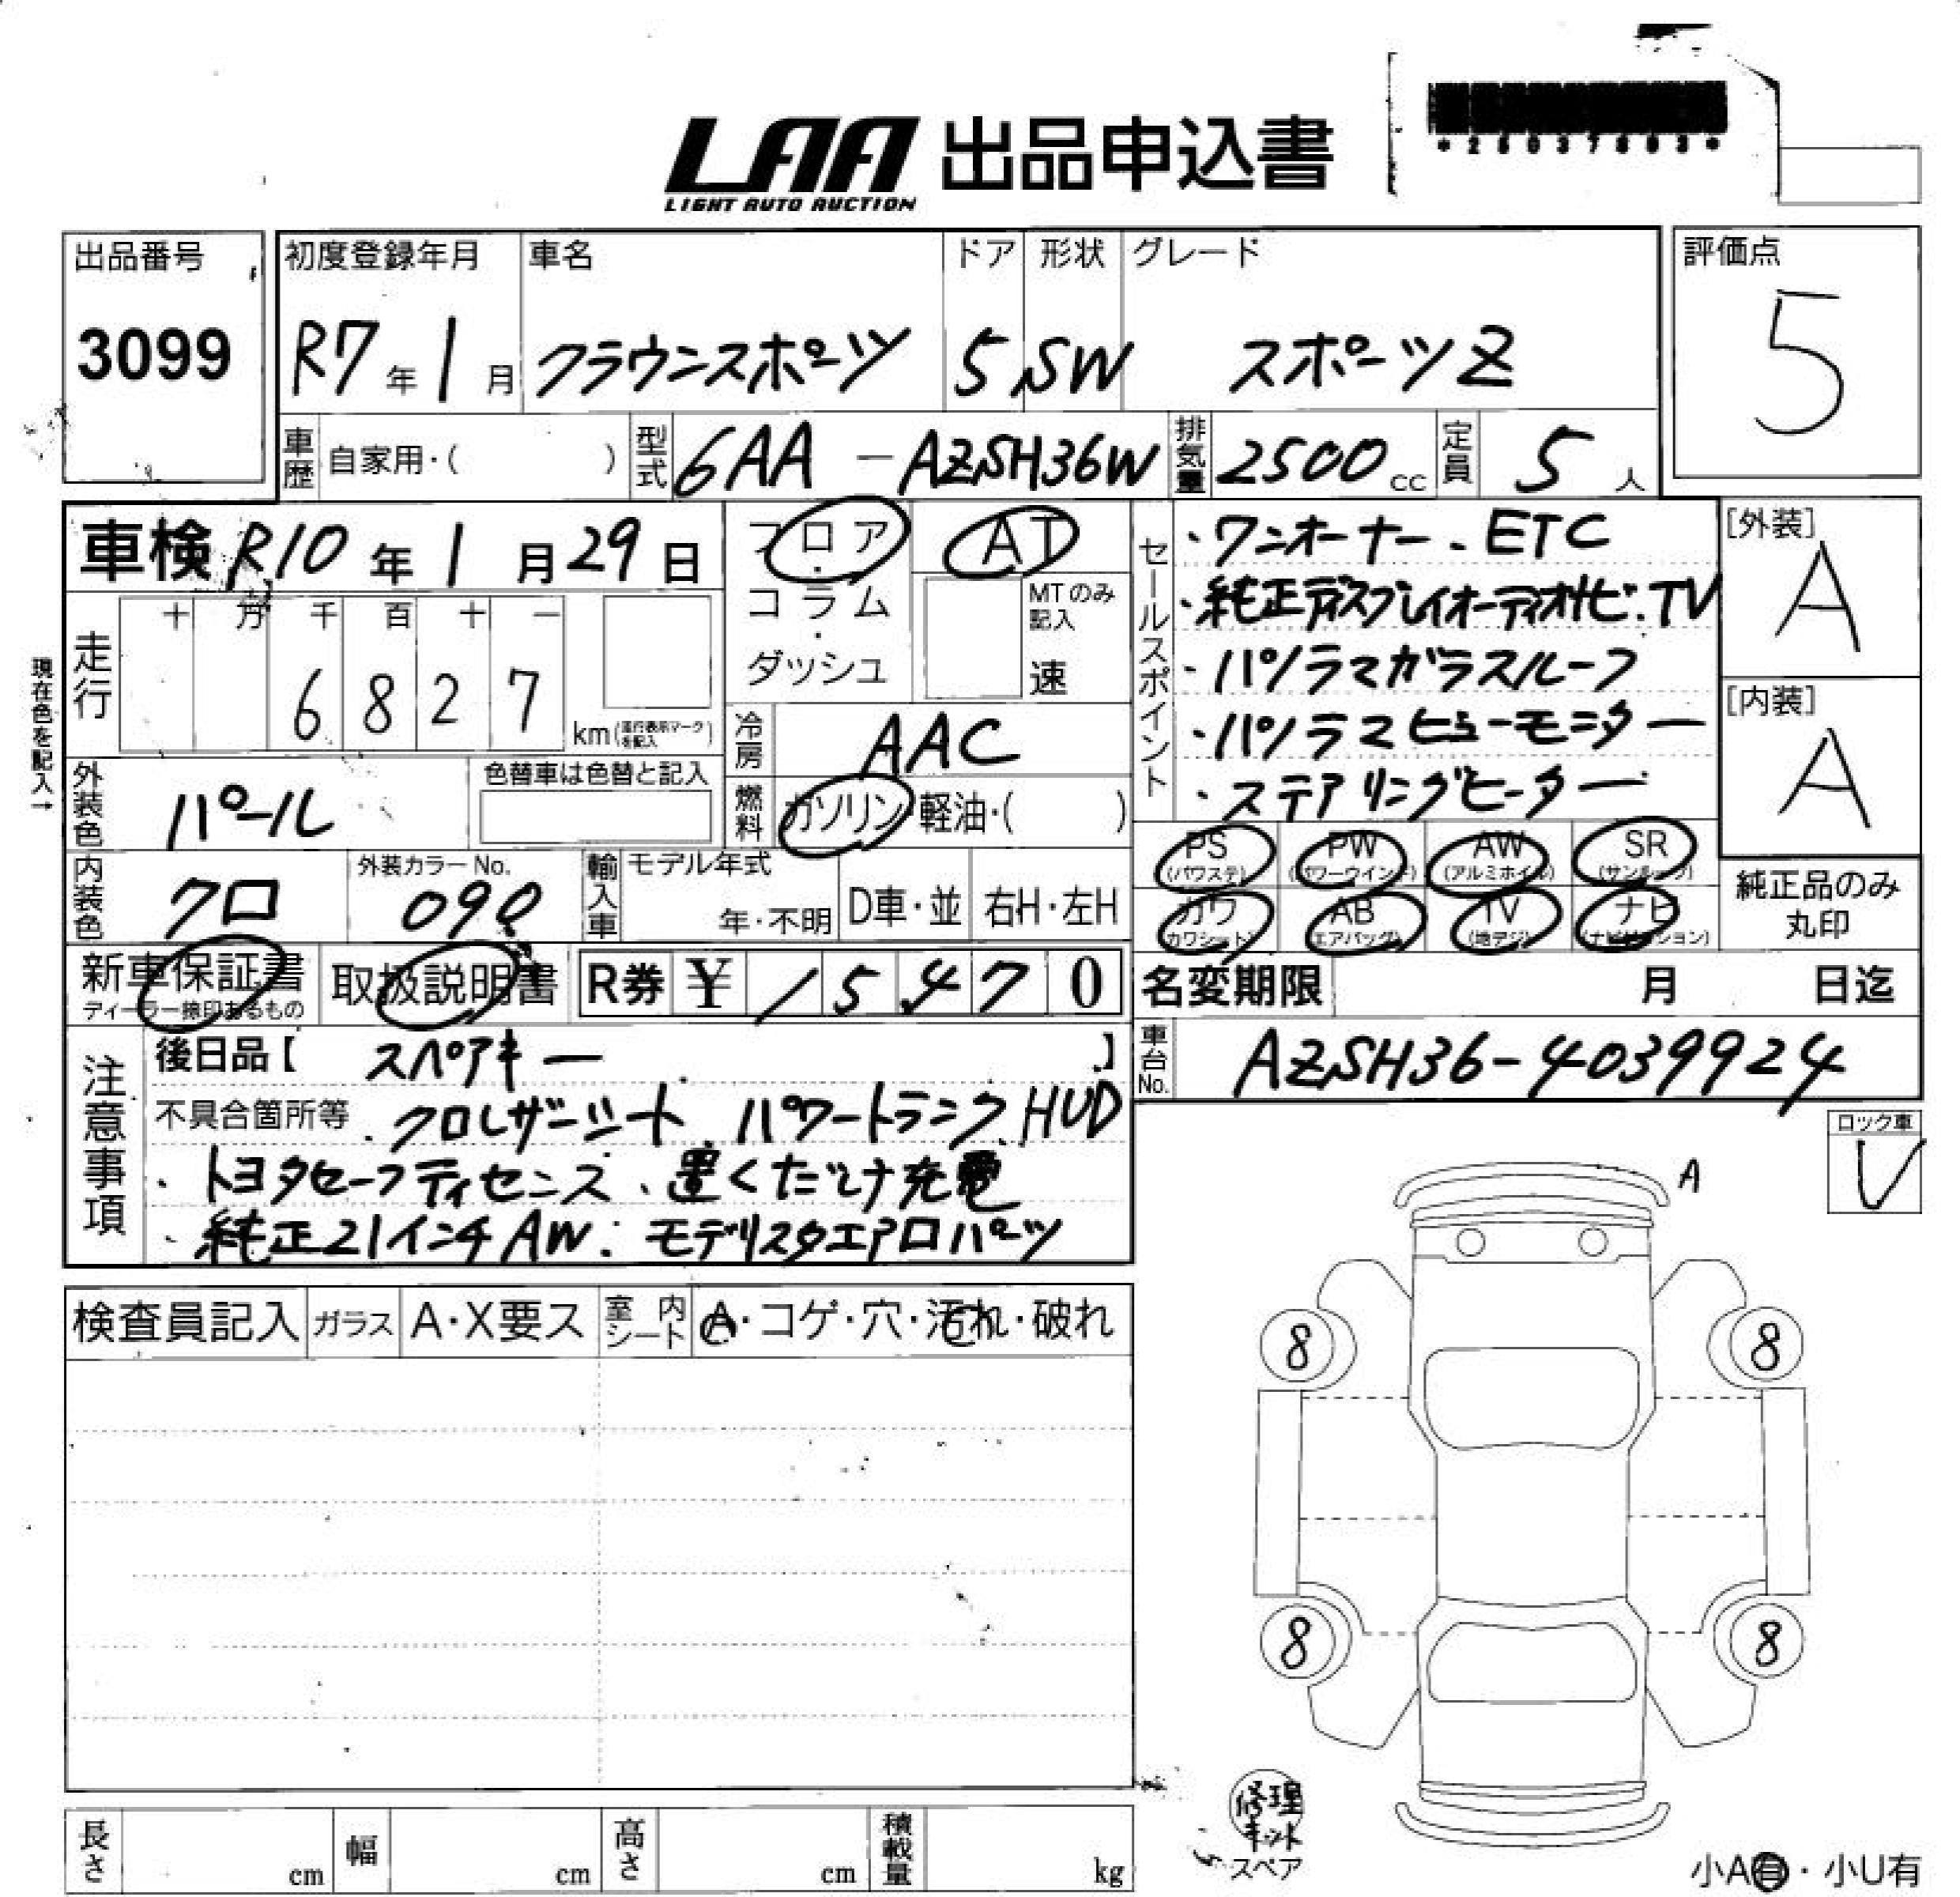 LAA 出品申込書
LIGHT AUTO AUCTION
出品番号
3099
初度登録年月
R7年1月
車名
クラウンスポーツ
ドア
5
形状
SW
グレード
スポーツZ
評価点
5
車歴 自家用・( )
型式 6AA-AZSH36W
排気量 2500cc
定員 5人
車検 R10年1月29日
フロア・コラム・ダッシュ
AT
MTのみ記入
速
セールスポイント
・ワンオーナー、ETC
・純正ディスプレイオーディオナビ・TV
・パノラマガラスルーフ
・パノラマビューモニター
・ステアリングヒーター
[外装]
A
[内装]
A
現在色を記入→
走行
十 万 千 百 十 一
6 8 2 7
km(走行表示マークを記入)
冷房 AAC
燃料 ガソリン・軽油・( )
外装色 パール
色替車は色替と記入
内装色 クロ
外装カラーNo.
輸入車 モデル年式
年・不明
D車・並
右H・左H
PS (パワステ)
PW (パワーウインド)
AW (アルミホイル)
SR (サンルーフ)
カワ (カワシート)
AB (エアバッグ)
TV (地デジ)
ナビ (ナビゲーション)
純正品のみ
丸印
新車保証書
ディーラー捺印あるもの
取扱説明書
R券 ¥ 15470
名変期限 月 日迄
車台No. AZSH36-4039924
注意事項
後日品【 スペアキー 】
不具合箇所等 ・クロレザーシート、パワートランク、HUD
・トヨタセーフティセンス、置くだけ充電
・純正21インチAW・モデリスタエアロパーツ
ロック車
レ
A
検査員記入
ガラス A・X要ス
室内シート A・コゲ・穴・汚れ・破れ
8 8
8 8
修理
キット
スペア
長さ cm
幅 cm
高さ cm
積載量 kg
小A有・小U有